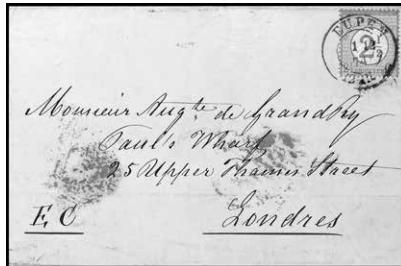 EUPEN
2 1/2
Monsieur Augte de GrandRy
Paul's Wharf
25 Upper Thames Street
E C Londres